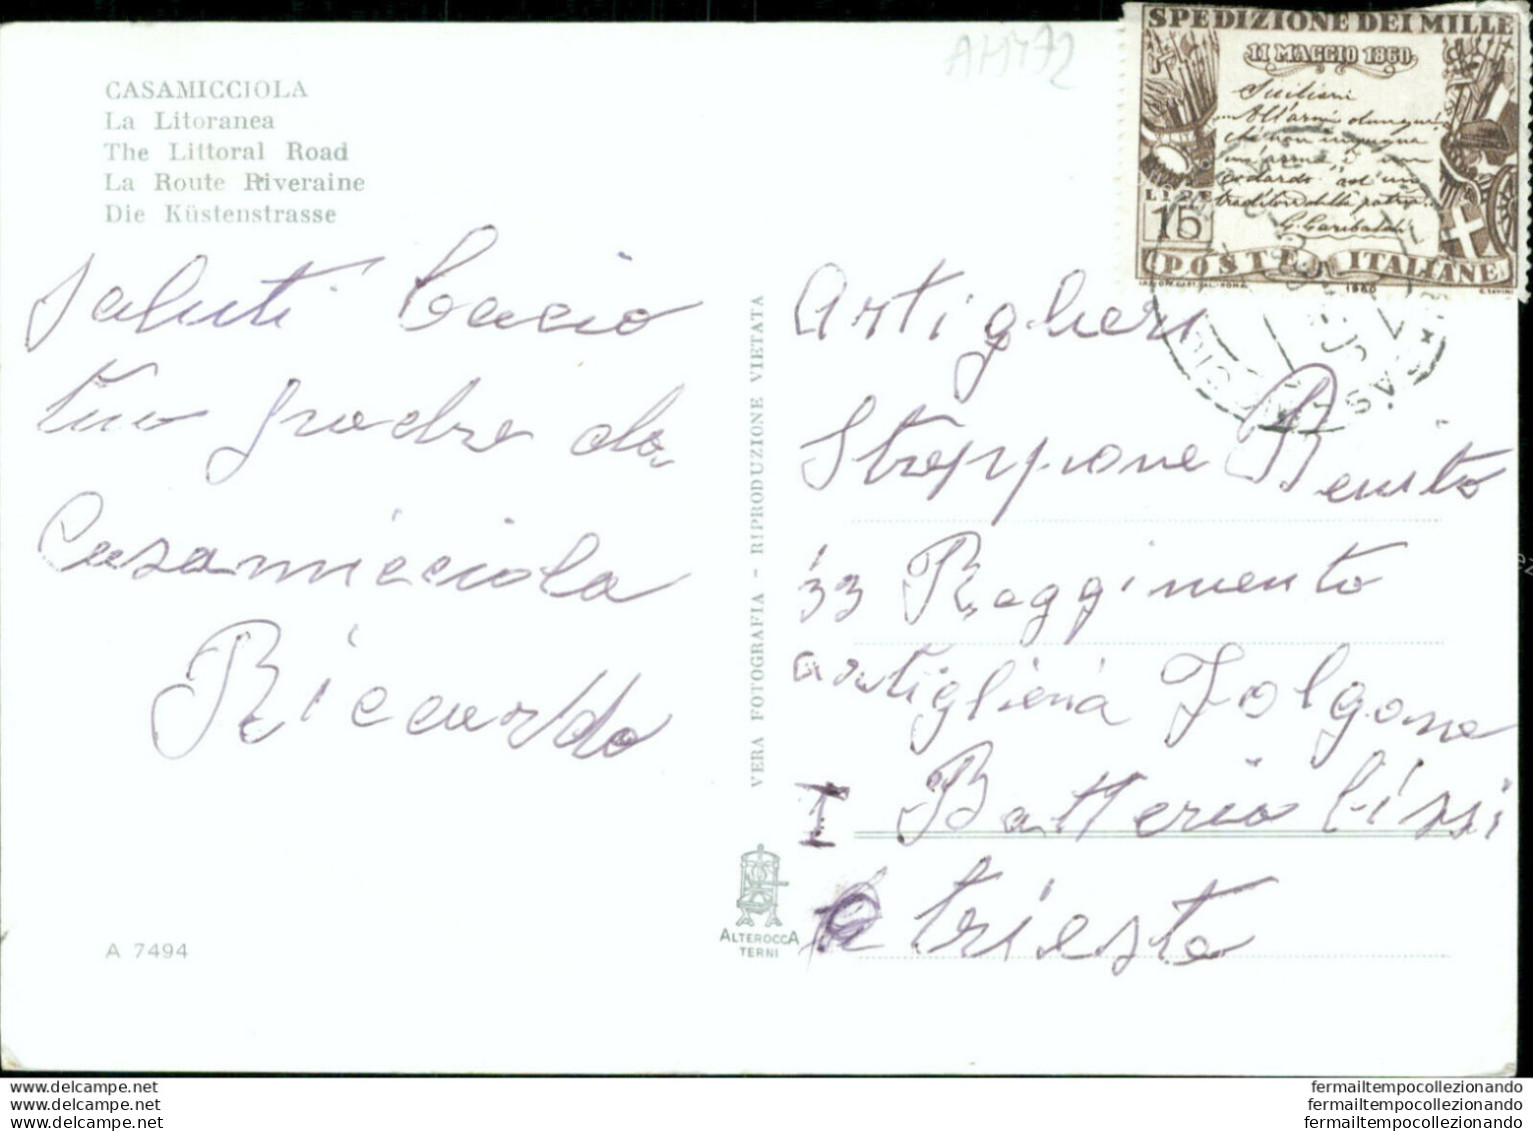 AH472
SPEDIZIONE DEI MILLE
11 MAGGIO 1860.
Siciliani
All'armi dunque!
chi non impugna
un'arma è un
codardo od un
traditore della patria.
G. Garibaldi
LIRE
15
POSTE ITALIANE
1960
CASAMICCIOLA
La Litoranea
The Littoral Road
La Route Riveraine
Die Küstenstrasse
Saluti Bacio
tuo padre da
Casamicciola
Riccardo
VERA FOTOGRAFIA - RIPRODUZIONE VIETATA
Artiglieri
Stroppione Benito
33 Raggimento
artiglieria Folgore
I Batteria
Trieste
ALTEROCCA
TERNI
A 7494
www.delcampe.net
www.delcampe.net
www.delcampe.net
fermailtempocollezionando
fermailtempocollezionando
fermailtempocollezionando